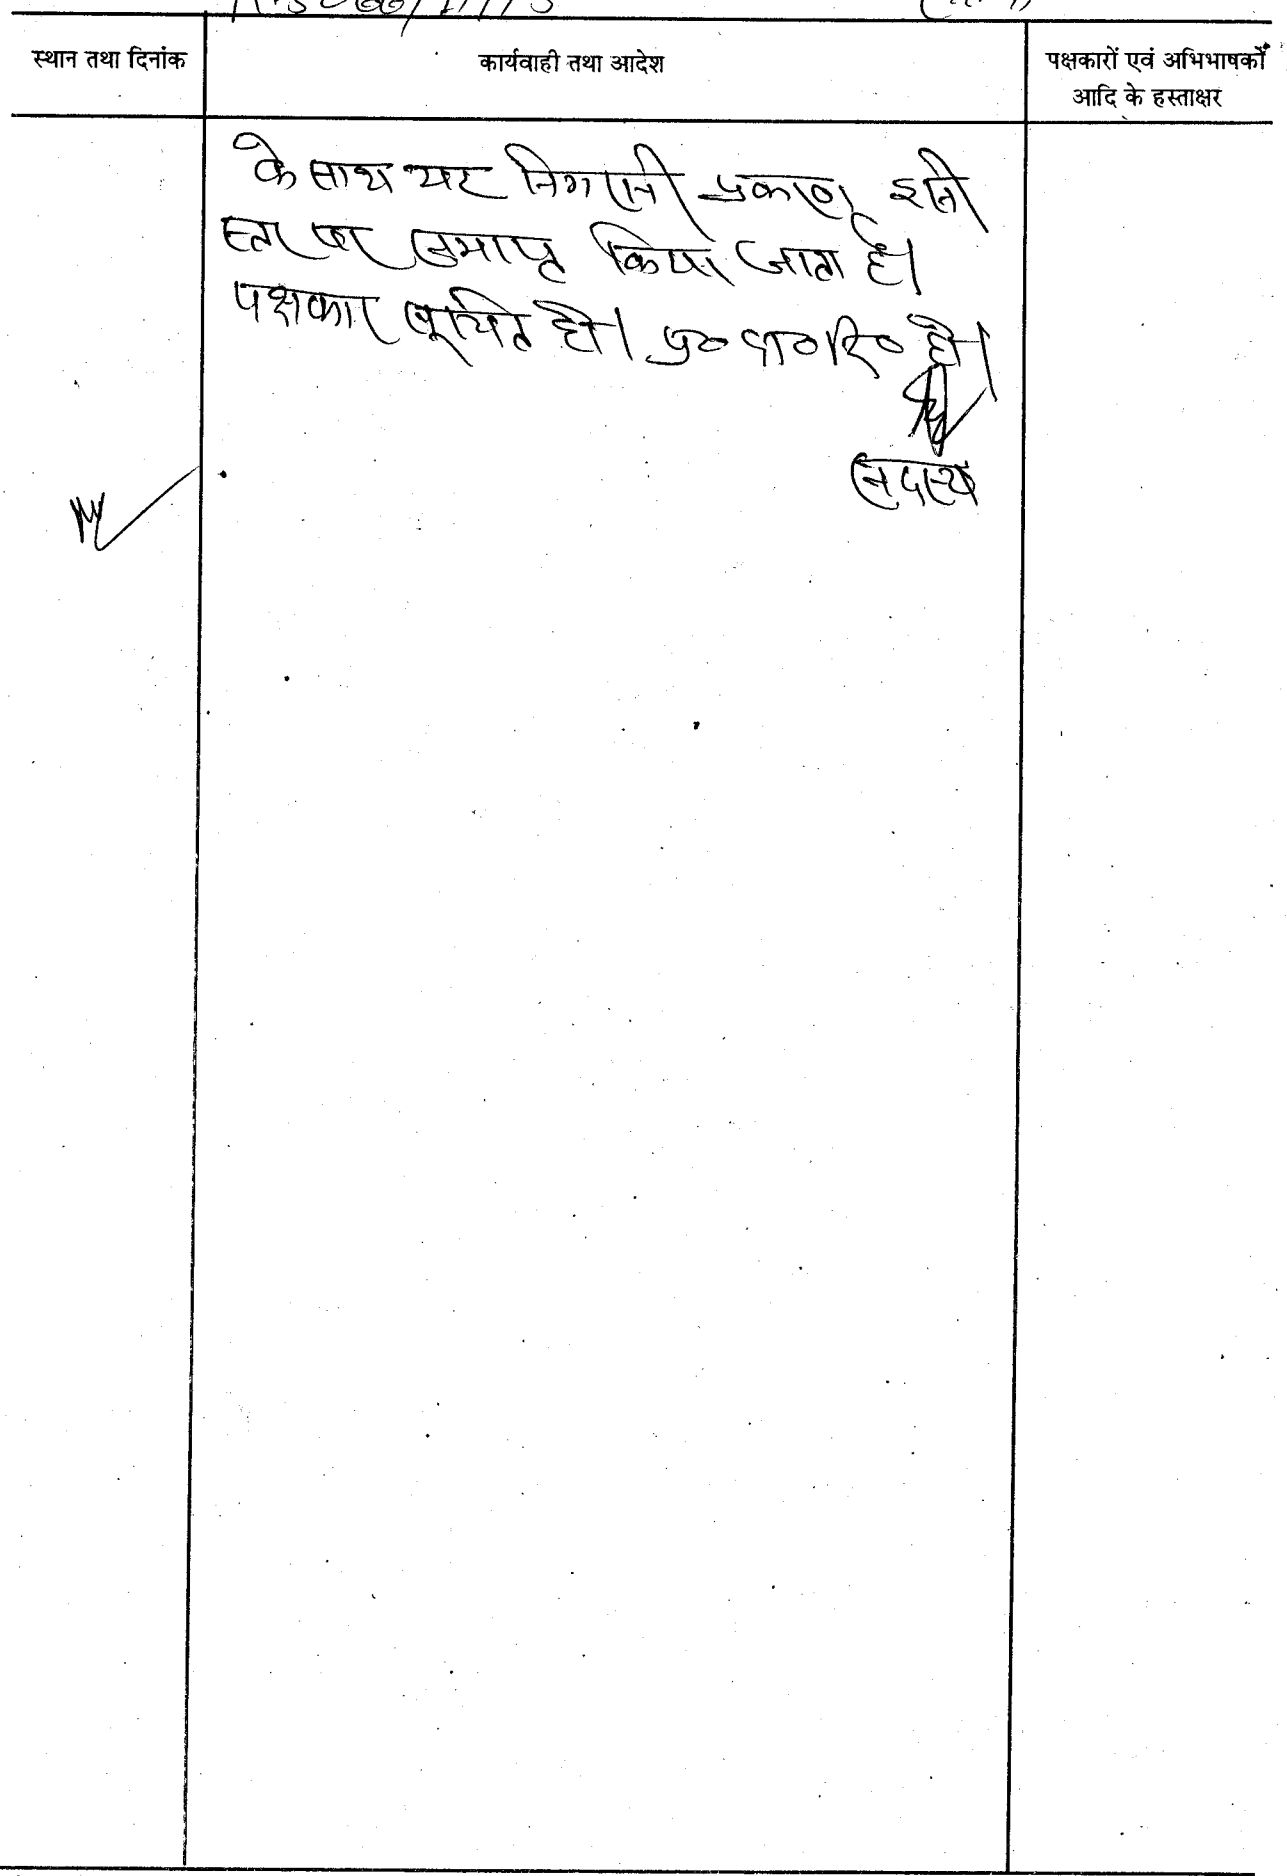 स्थान तथा दिनांक
कार्यवाही तथा आदेश
पक्षकारों एवं अभिभाषकों
आदि के हस्ताक्षर
के साथ यह निगरानी प्रकरण इसी
स्तर पर समाप्त किया जाता है।
पक्षकार सूचित हों। प्र० दा०रि० हो।
सदस्य